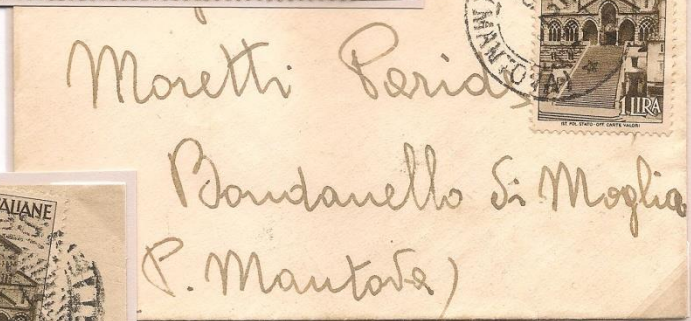 (MANTOVA)
1 LIRA
IST. POL. STATO - OFF. CARTE VALORI
Moretti Paride
Bondanello di Moglia
(P. Mantova)
ALIANE